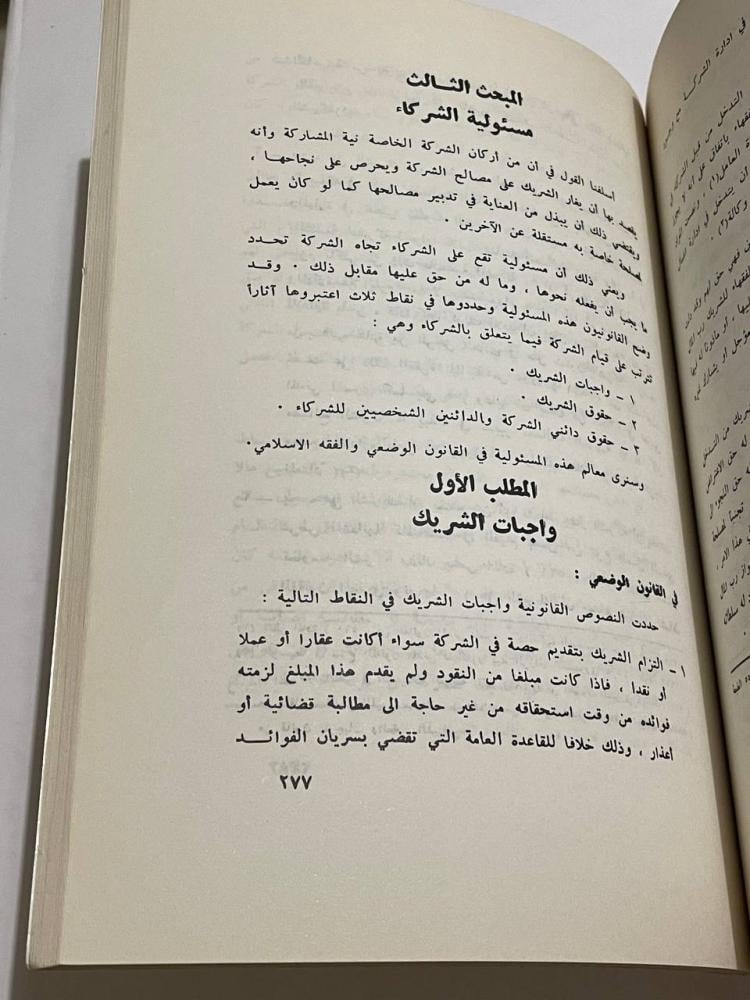 المبحث الثالث
مسئولية الشركاء
اسلفنا القول في أن من أركان الشركة الخاصة نية المشاركة وأنه
يقصد بها أن يغار الشريك على مصالح الشركة ويحرص على نجاحها ،
ويقتضي ذلك أن يبذل من العناية في تدبير مصالحها كما لو كان يعمل
لمصلحة خاصة به مستقلة عن الآخرين .
ويعني ذلك ان مسئولية تقع على الشركاء تجاه الشركة تحدد
ما يجب أن يفعله نحوها ، وما له من حق عليها مقابل ذلك . وقد
وضح القانونيون هذه المسئولية وحددوها في نقاط ثلاث اعتبروها آثاراً
تترتب على قيام الشركة فيما يتعلق بالشركاء وهي :
١ - واجبات الشريك .
٢ - حقوق الشريك .
٣ - حقوق دائني الشركة والدائنين الشخصيين للشركاء .
وسنرى معالم هذه المسئولية في القانون الوضعي والفقه الاسلامي.
المطلب الأول
واجبات الشريك
في القانون الوضعي :
حددت النصوص القانونية واجبات الشريك في النقاط التالية :
١ - التزام الشريك بتقديم حصة في الشركة سواء أكانت عقارا أو عملا
أو نقدا ، فاذا كانت مبلغا من النقود ولم يقدم هذا المبلغ لزمته
فوائده من وقت استحقاقه من غير حاجة الى مطالبة قضائية أو
أعذار ، وذلك خلافا للقاعدة العامة التي تقضي بسريان الفوائد
٢٧٧
في ادارة الشركة